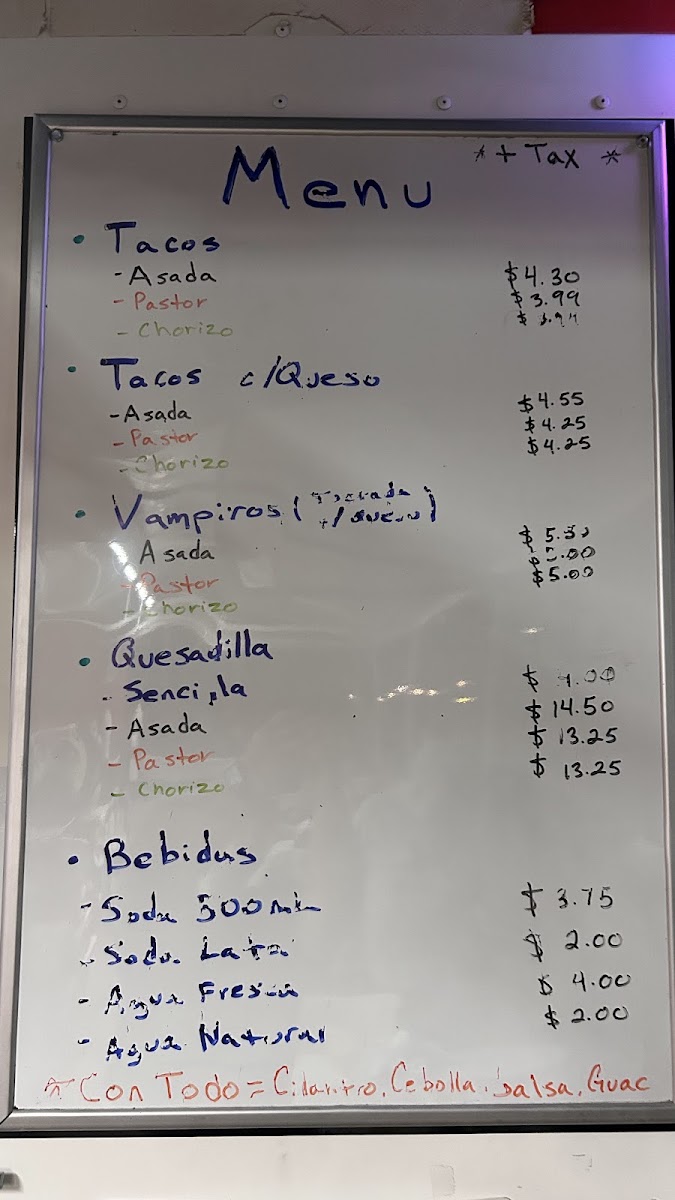 Menu * + Tax *
• Tacos
- Asada $4.30
- Pastor $3.99
- Chorizo
• Tacos c/Queso
- Asada $4.55
- Pastor $4.25
- Chorizo $4.25
• Vampiros (Tostada
Asada
- Pastor $5.00
- Chorizo $5.00
• Quesadilla
- Sencilla
- Asada $14.50
- Pastor $13.25
- Chorizo $13.25
• Bebidas
- Soda 500 $3.75
- Soda Lata $2.00
- Agua Fresca $4.00
- Agua Natural $2.00
* Con Todo = Cilantro, Cebolla, Salsa, Guac